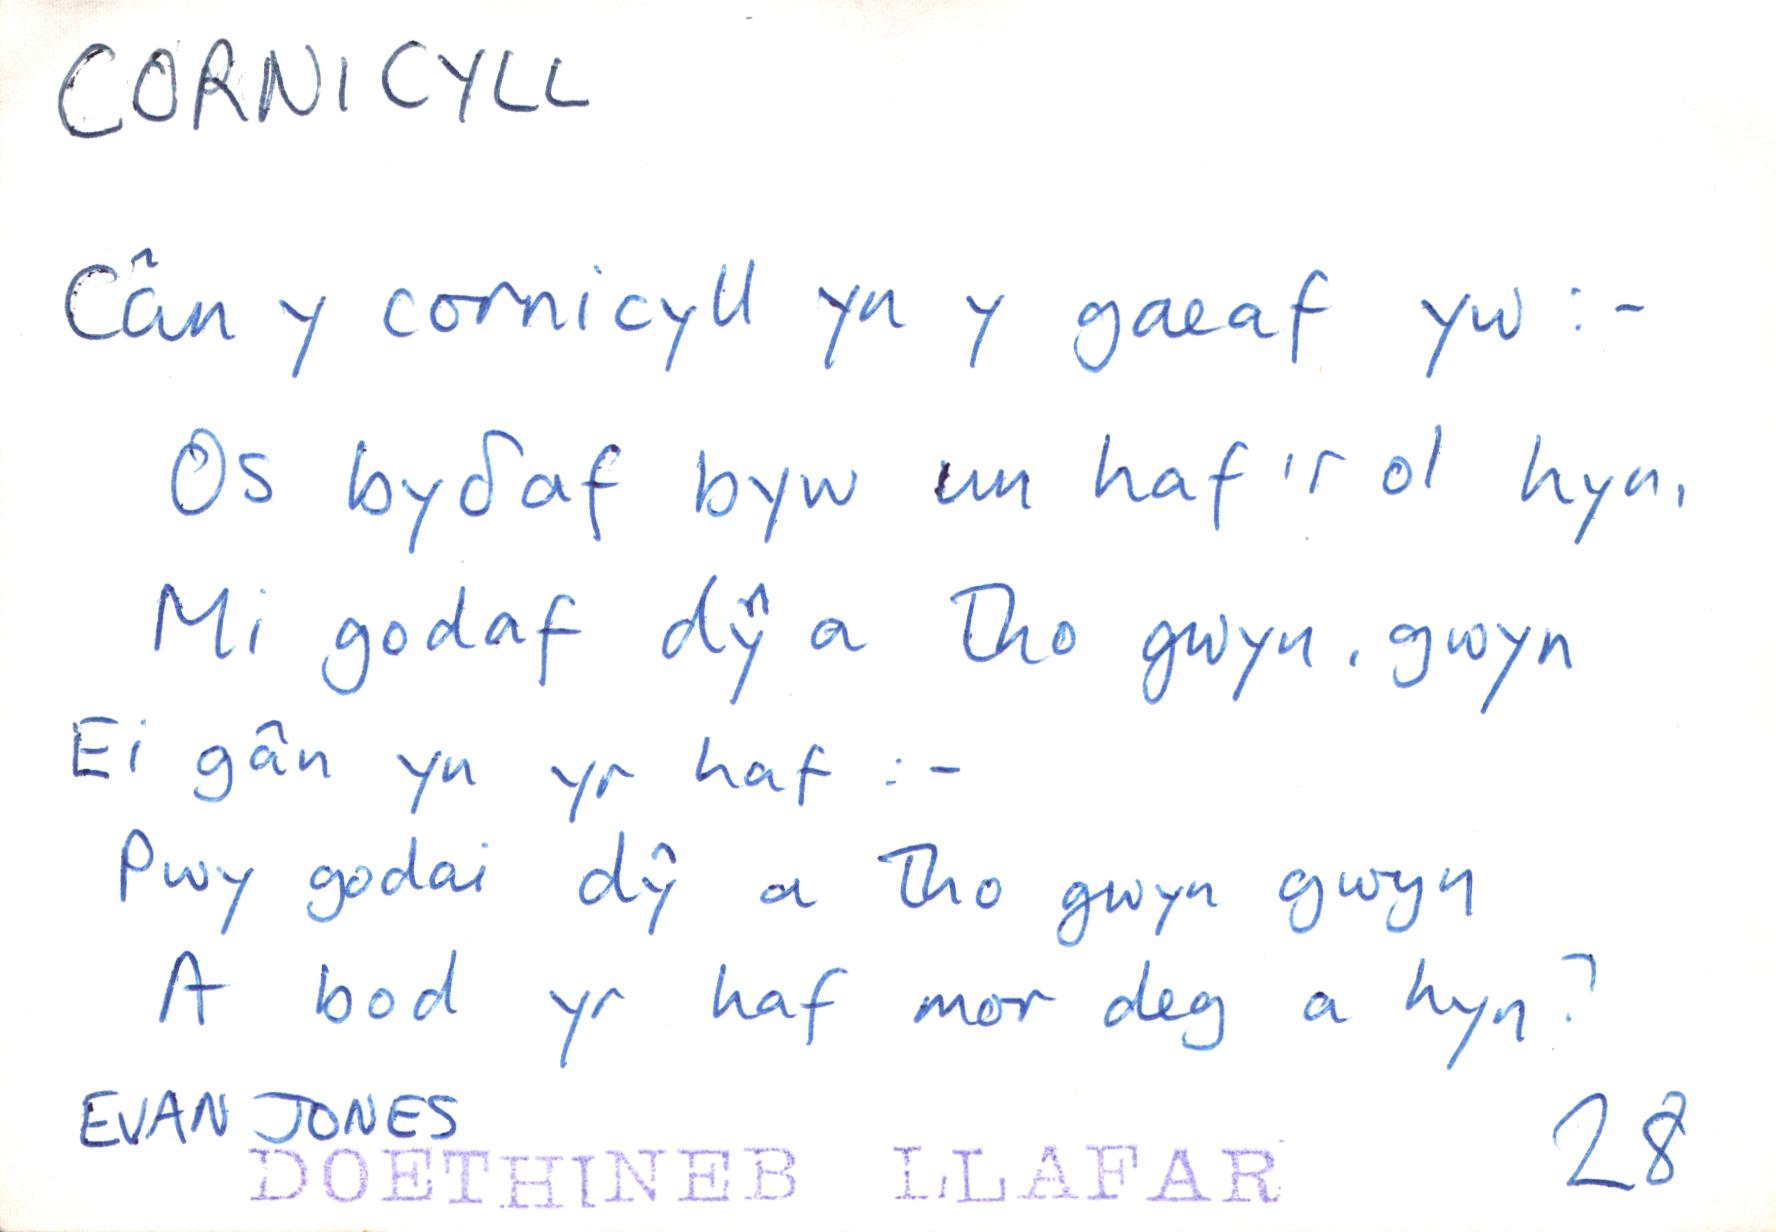 CORNICYLL
Cân y cornicyll yn y gaeaf yw :-
Os byδaf byw un haf 'r ol hyn,
Mi godaf dŷ a Tho gwyn, gwyn
Ei gân yn yr haf :-
Pwy godai dŷ a Tho gwyn gwyn
A bod yr haf mor deg a hyn?
EVAN JONES
28
DOETHINEB LLAFAR